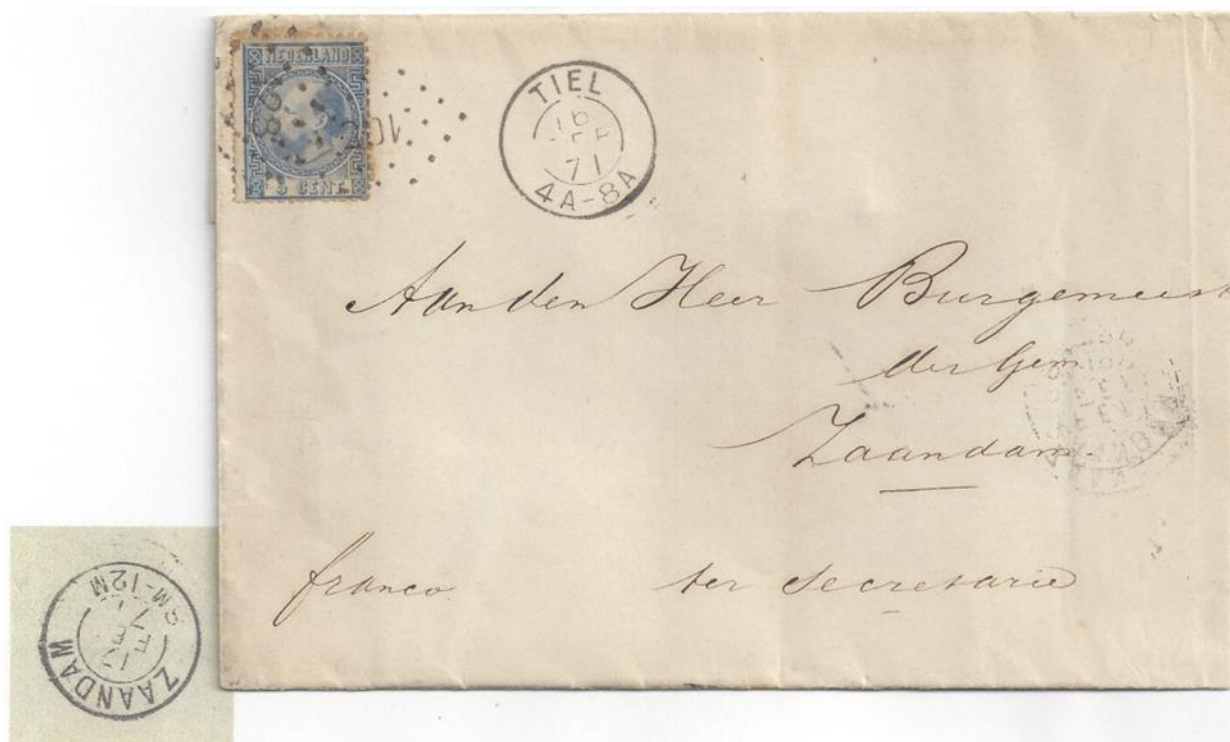 NEDERLAND
5 CENT
TIEL
16
71
4A-8A
Aan den Heer Burgemeest
der Gem
Zaandam
franco
ter Secretarie
ZAANDAM
8M-12M